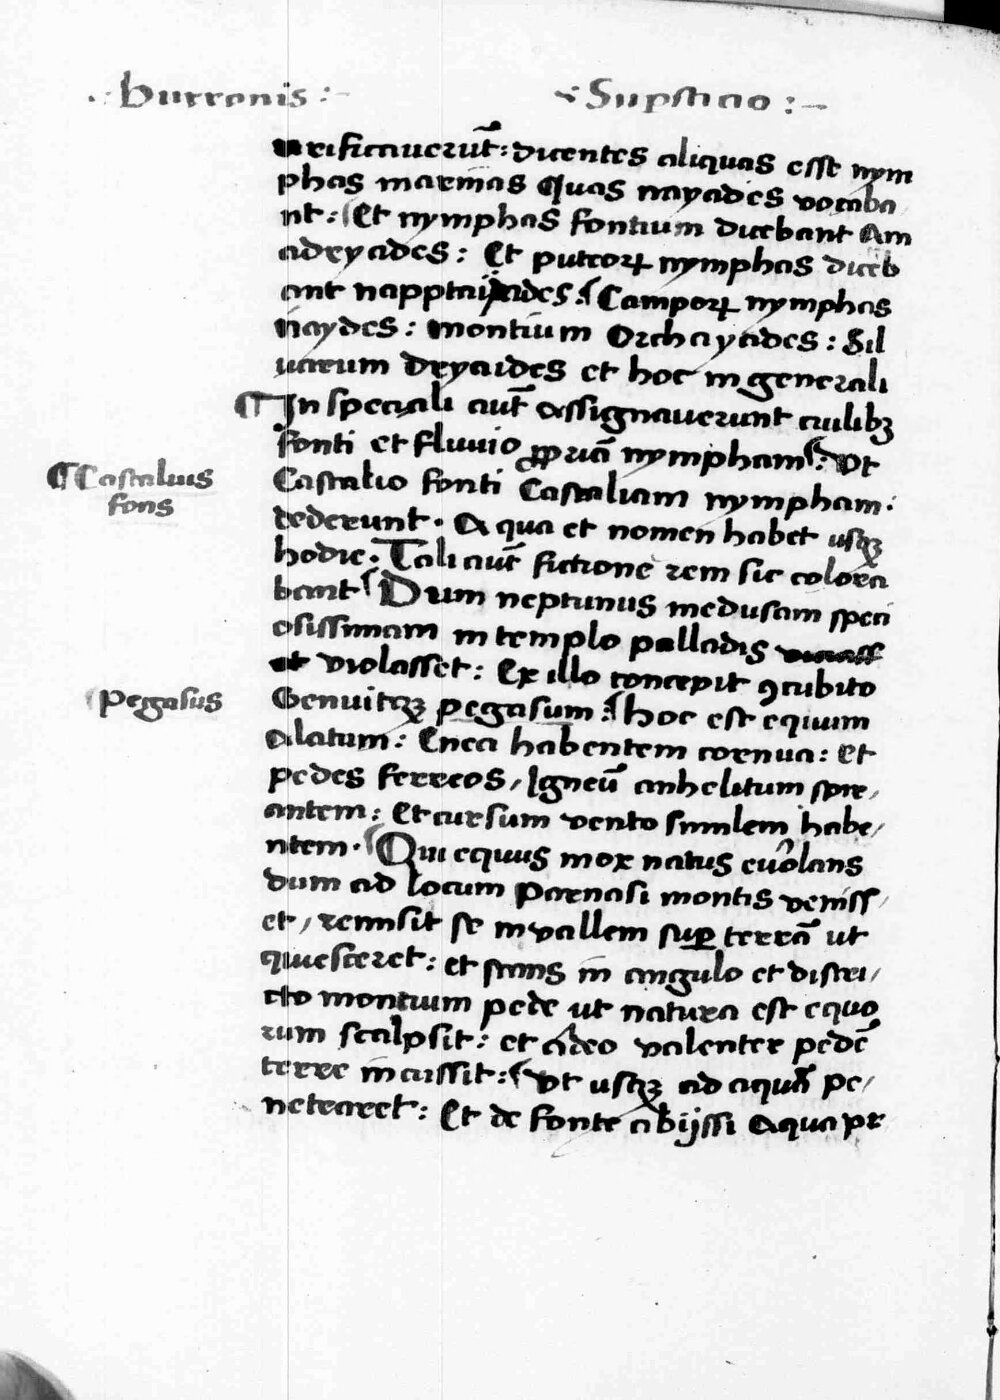 Burronis :~ Supsticio :~
urificauerūt: dicentes aliquas esse nym
phas marinas Quas nayades vocaba
nt: Et nymphas fontium dicebant Am
adryades: Et puteorꝝ nymphas diceb
ant napptaijades: Camporꝝ nymphas
naydes: Montium Orchayades: Sil
uarum dryaides et hoc in generali
¶ In speciali aūt assignauerunt cuilibꝫ
fonti et fluuio ꝓpriā nympham: Vt
¶ Castalius
fons
Castalio fonti Castaliam nympham:
dederunt. A qua et nomen habet usqꝫ
hodie. Tali aūt fictione rem sic colora
bant Dum neptunus medusam speci
osissimam in templo palladis
et violasset: Ex illo concepit ꝯcubito
Pegasus
Genuitqꝫ pegasum: hoc est equum
alatum: Enea habentem cornua: et
pedes ferreos, Igneū anhelitum spir,
antem: Et cursum vento similem habe,
ntem. Qui equus mox natus euolans
dum ad locum Parnasi montis veniss,
et, remisit se in vallem suꝑ terrā ut
quiesceret: et stans in angulo et distri,
cto montium pede ut natura est equo
rum scalpsit: et adeo valenter pedē
terre incussit: Vt usqꝫ ad aquā pe,
netraret: Et de fonte abijssi Aqua pr